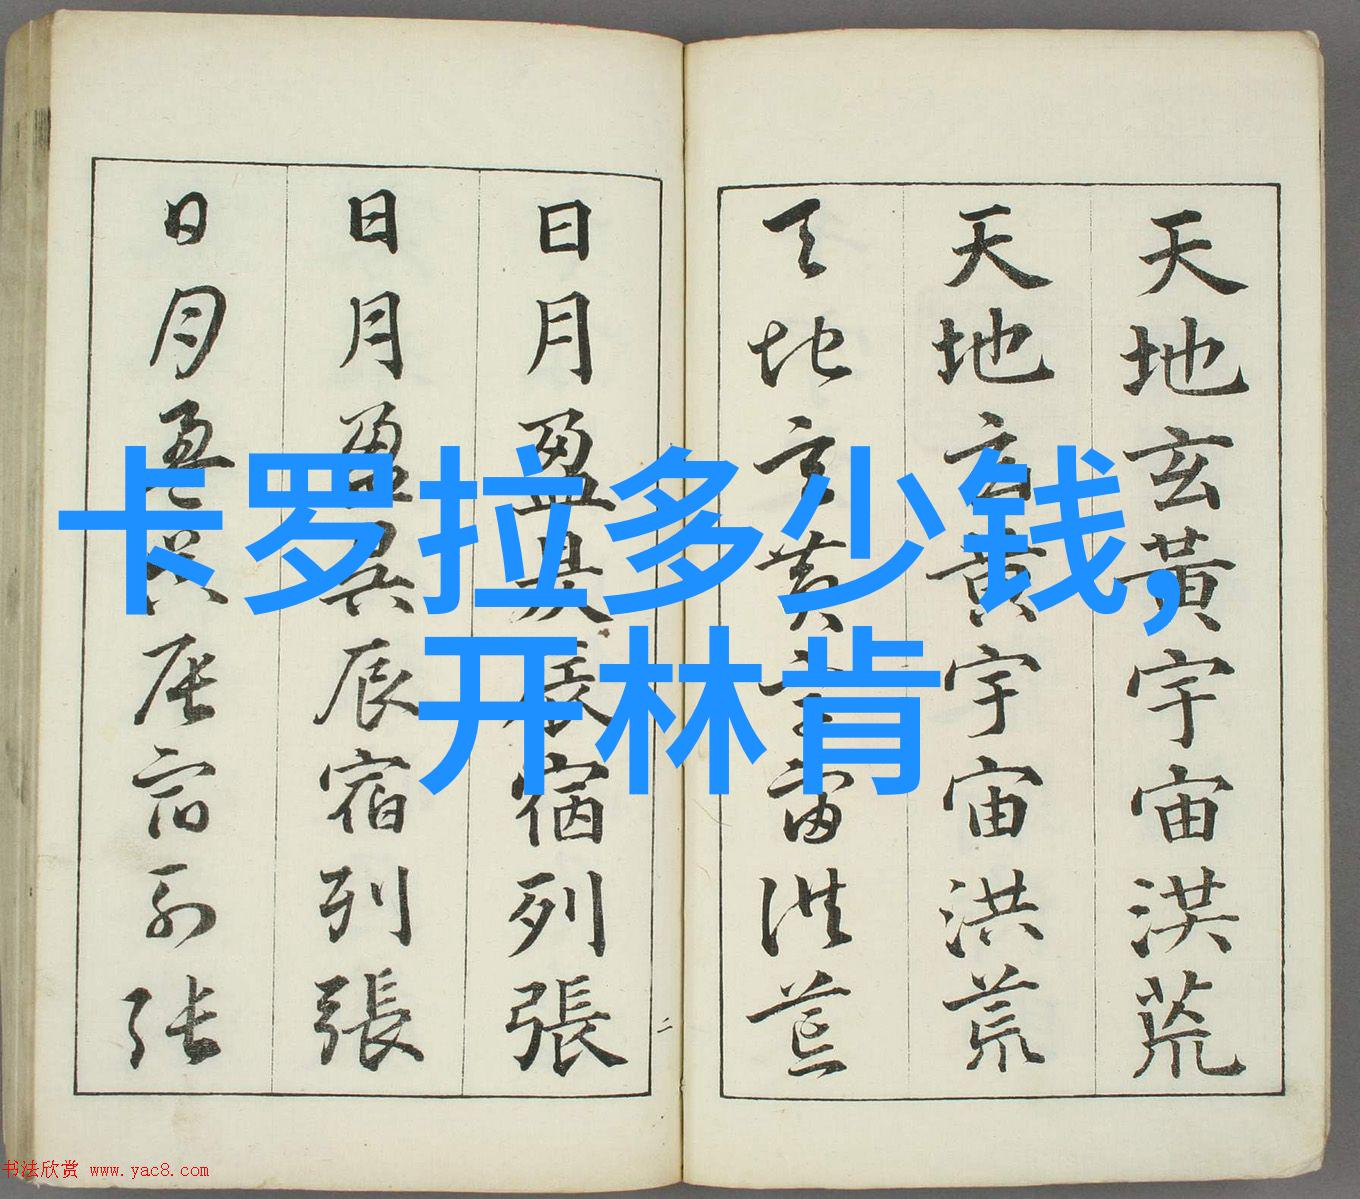 天地玄黃宇宙洪荒
天地玄黃宇宙洪荒
天地玄黃宇宙洪荒
日月盈昃辰宿列張
日月盈昃辰宿列張
日月盈昃辰宿列張
二
卡罗拉多少钱,
开林肯
书法欣赏 www.yac8.com